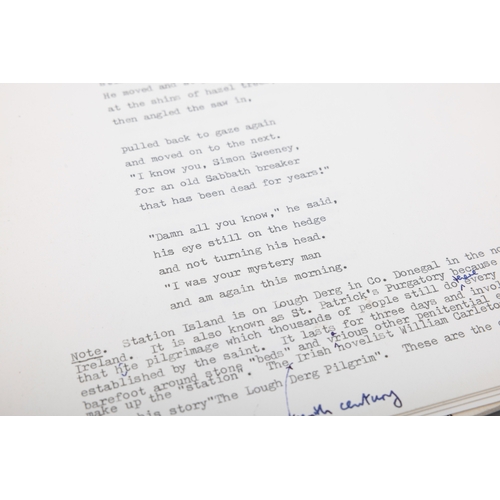 He moved and
at the shins of hazel
then angled the saw in,
pulled back to gaze again
and moved on to the next.
"I know you, Simon Sweeney,
for an old Sabbath breaker
that has been dead for years!"
"Damn all you know," he said,
his eye still on the hedge
and not turning his head.
"I was your mystery man
and am again this morning.
Note. Station Island is on Lough Derg in Co. Donegal in the
Ireland. It is also known as St. Patrick's Purgatory because
that pilgrimage which thousands of people still do every
established by the saint. It lasts for three days and
barefoot around stone "beds" and other penitential
make up the "station". The Irish novelist William
his story"The Lough Derg Pilgrim". These are the
century